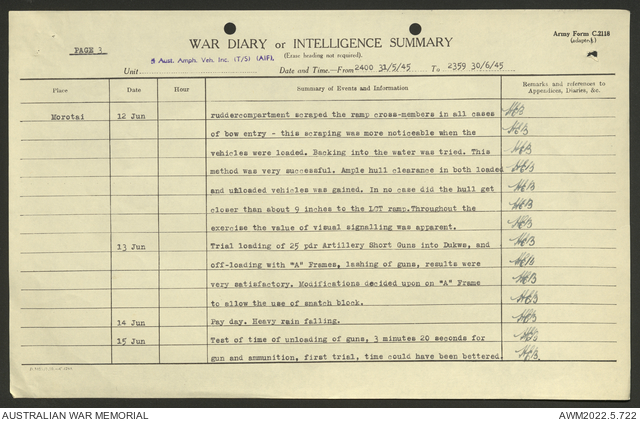 Army Form C.2118
(adapted)
PAGE 3
WAR DIARY or INTELLIGENCE SUMMARY
(Erase heading not required).
Aust. Amph. Veh. Inc. (T/S) (AIF).
Unit
Date and Time.—From 2400 31/5/45 To 2359 30/6/45
Place Date Hour Summary of Events and Information Remarks and references to Appendices, Diaries, &c.
Morotai 12 Jun ruddercompartment scraped the ramp cross-members in all cases
of bow entry - this scraping was more noticeable when the
vehicles were loaded. Backing into the water was tried. This
method was very successful. Ample hull clearance in both loaded
and unloaded vehicles was gained. In no case did the hull get
closer than about 9 inches to the LCT ramp.Throughout the
exercise the value of visual signalling was apparent.
13 Jun Trial loading of 25 pdr Artillery Short Guns into Dukws, and
off-loading with "A" Frames, lashing of guns, results were
very satisfactory. Modifications decided upon on "A" Frame
to allow the use of snatch block.
14 Jun Pay day. Heavy rain falling.
15 Jun Test of time of unloading of guns, 3 minutes 20 seconds for
gun and ammunition, first trial, time could have been bettered.
AUSTRALIAN WAR MEMORIAL AWM2022.5.722